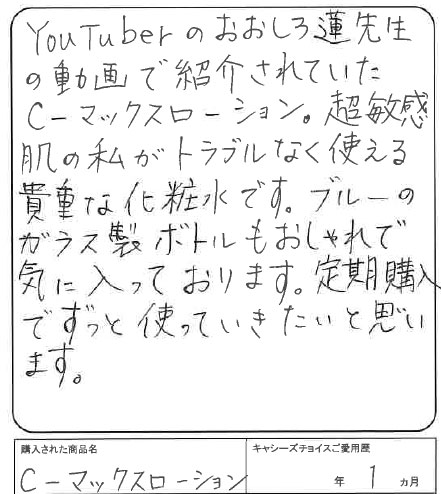 YouTuberのおおしろ蓮先生
の動画で紹介されていた
C-マックスローション。超敏感
肌の私がトラブルなく使える
貴重な化粧水です。ブルーの
ガラス製ボトルもおしゃれで
気に入っております。定期購入
でずっと使っていきたいと思い
ます。
購入された商品名 キャシーズチョイスご愛用歴
C-マックスローション 年 1 ヵ月